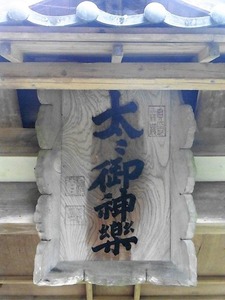 太々御神樂